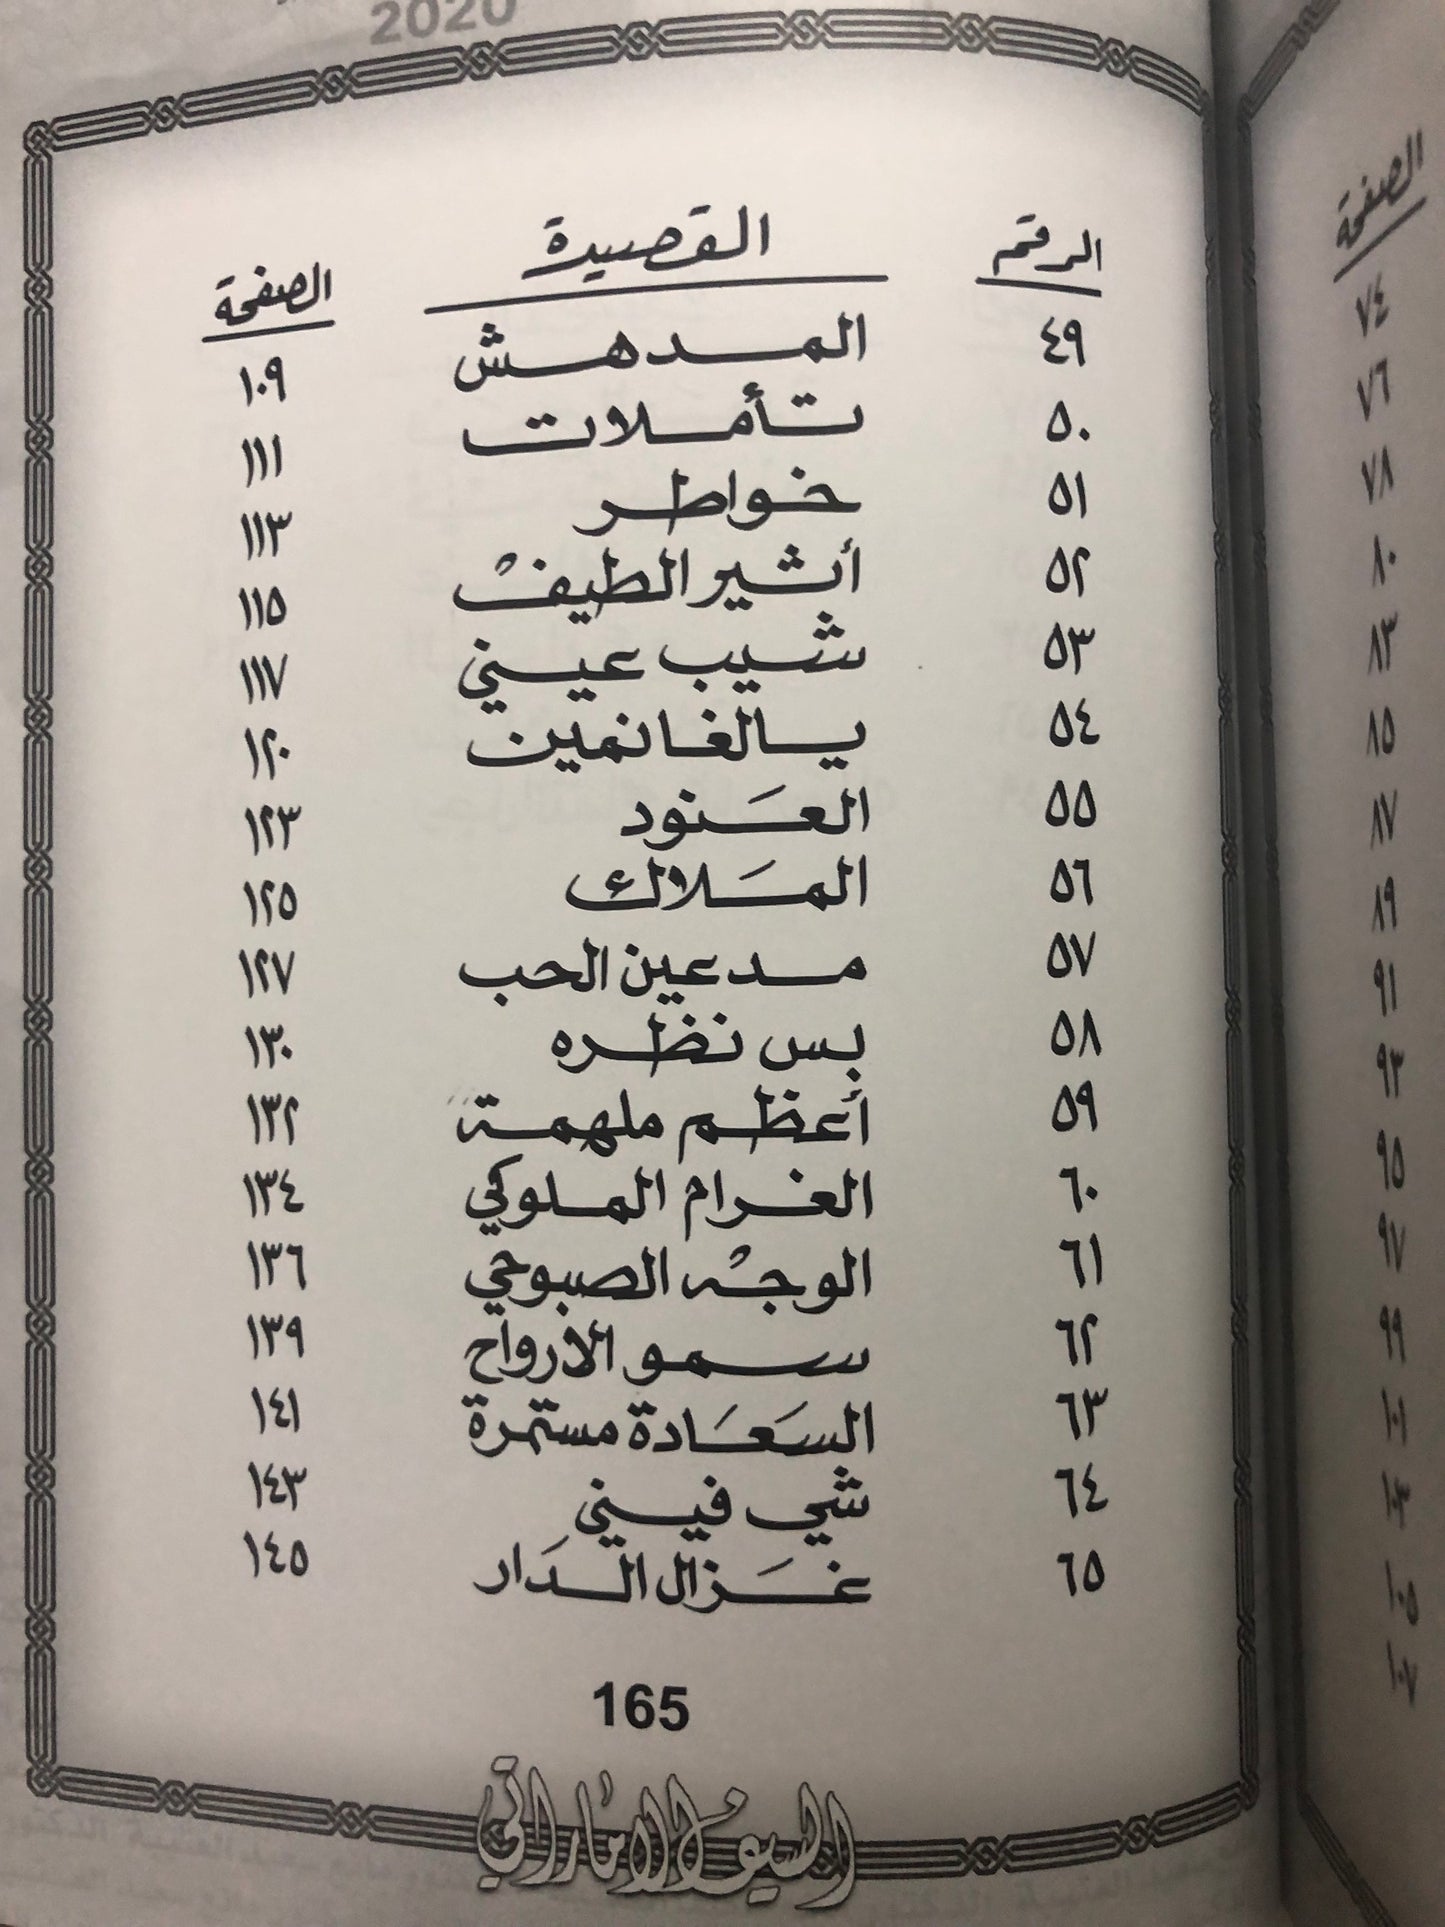 2020
الرقم القصيدة الصفحة
٤٩ المدهش ١٠٩
٥٠ تأملات ١١١
٥١ خواطر ١١٣
٥٢ أثير الطيف ١١٥
٥٣ شيب عيني ١١٧
٥٤ يالغانمين ١٢٠
٥٥ العَنود ١٢٣
٥٦ المَلاك ١٢٥
٥٧ مدعين الحب ١٢٧
٥٨ بس نظره ١٣٠
٥٩ أعظم ملهمة ١٣٢
٦٠ الغرام الملوكي ١٣٤
٦١ الوجْه الصبوحي ١٣٦
٦٢ سمو الأرواح ١٣٩
٦٣ السَعَادة مستمرة ١٤١
٦٤ شي فيني ١٤٣
٦٥ غَزال الدَار ١٤٥
165
السيف الاماراتي
الصفحة
٧٤
٧٦
٧٨
٨٠
٨٣
٨٥
٨٧
٨٩
٩١
٩٣
٩٥
٩٧
٩٩
١٠١
١٠٣
١٠٥
١٠٧